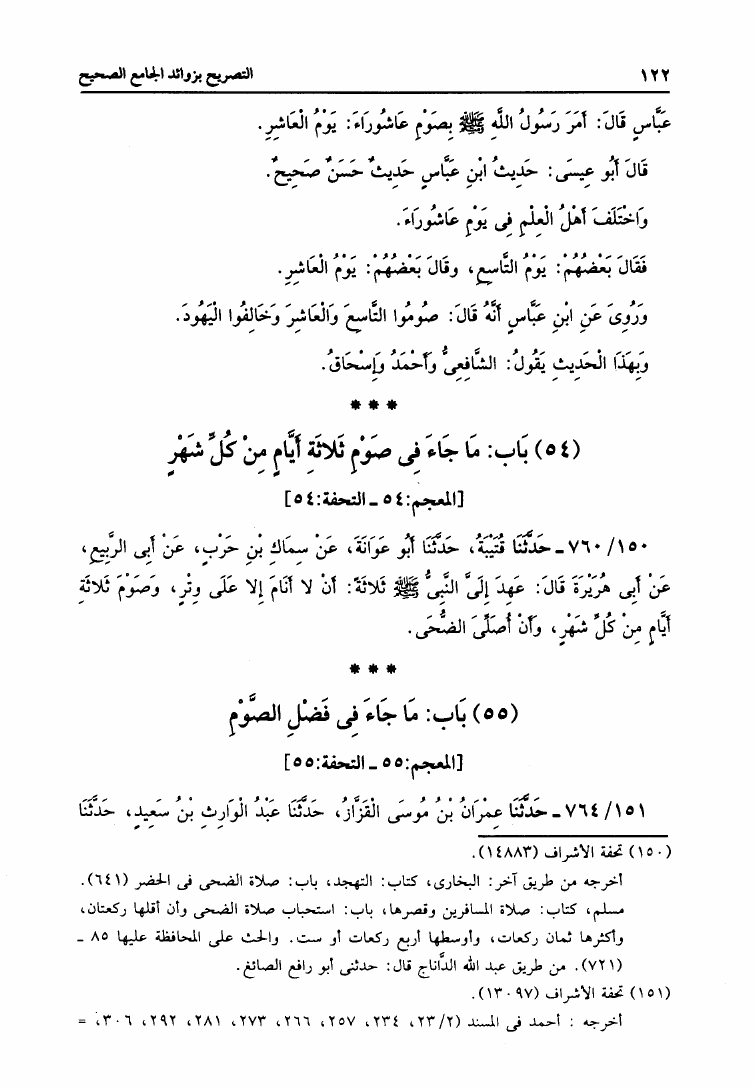 ١٢٢ التصريح بزوائد الجامع الصحيح
عَبَّاسٍ قَالَ: أَمَرَ رَسُولُ اللَّهِ ﷺ بِصَوْمِ عَاشُورَاءَ: يَوْمُ الْعَاشِرِ.
قَالَ أَبُو عِيسَى: حَدِيثُ ابْنِ عَبَّاسٍ حَدِيثٌ حَسَنٌ صَحِيحٌ.
وَاخْتَلَفَ أَهْلُ الْعِلْمِ فِى يَوْمِ عَاشُورَاءَ.
فَقَالَ بَعْضُهُمْ: يَوْمُ التَّاسِعِ، وقَالَ بَعْضُهُمْ: يَوْمُ الْعَاشِرِ.
وَرُوِىَ عَنِ ابْنِ عَبَّاسٍ أَنَّهُ قَالَ: صُومُوا التَّاسِعَ وَالْعَاشِرَ وَخَالِفُوا الْيَهُودَ.
وَبِهَذَا الْحَدِيثِ يَقُولُ: الشَّافِعِىُّ وَأَحْمَدُ وَإِسْحَاقُ.
* * *
(٥٤) بَاب: مَا جَاءَ فِى صَوْمِ ثَلاثَةِ أَيَّامٍ مِنْ كُلِّ شَهْرٍ
[المعجم:٥٤ ـ التحفة:٥٤]
٧٦٠/١٥٠ـ حَدَّثَنَا قُتَيْبَةُ، حَدَّثَنَا أَبُو عَوَانَةَ، عَنْ سِمَاكِ بْنِ حَرْبٍ، عَنْ أَبِى الرَّبِيعِ،
عَنْ أَبِى هُرَيْرَةَ قَالَ: عَهِدَ إِلَىَّ النَّبِىُّ ﷺ ثَلاثَةً: أَنْ لا أَنَامَ إِلا عَلَى وِتْرٍ، وَصَوْمَ ثَلاثَةِ
أَيَّامٍ مِنْ كُلِّ شَهْرٍ، وَأَنْ أُصَلِّىَ الضُّحَى.
* * *
(٥٥) بَاب: مَا جَاءَ فِى فَضْلِ الصَّوْمِ
[المعجم:٥٥ ـ التحفة:٥٥]
٧٦٤/١٥١ـ حَدَّثَنَا عِمْرَانُ بْنُ مُوسَى الْقَزَّازُ، حَدَّثَنَا عَبْدُ الْوَارِثِ بْنُ سَعِيدٍ، حَدَّثَنَا
(١٥٠) تحفة الأشراف (١٤٨٨٣).
أخرجه من طريق آخر: البخارى، كتاب: التهجد، باب: صلاة الضحى فى الحضر (٦٤١).
مسلم، كتاب: صلاة المسافرين وقصرها، باب: استحباب صلاة الضحى وأن أقلها ركعتان،
وأكثرها ثمان ركعات، وأوسطها أربع ركعات أو ست. والحث على المحافظة عليها ٨٥ ـ
(٧٢١). من طريق عبد الله الدَّاناج قال: حدثنى أبو رافع الصائغ.
(١٥١) تحفة الأشراف (١٣٠٩٧).
أخرجه : أحمد فى المسند (٢٣/٢، ٢٣٤، ٢٥٧، ٢٦٦، ٢٧٣، ٢٨١، ٢٩٢، ٣٠٦، =